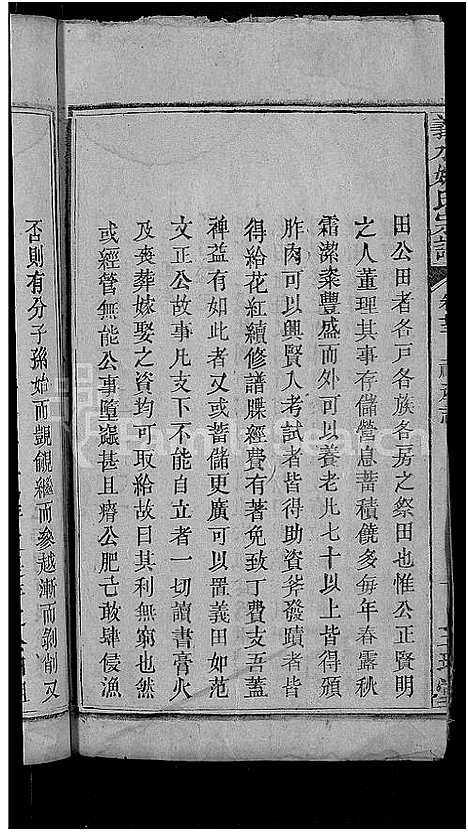 田公田者各戸各族各房之祭田也惟公正賢明
之人董理其事存儲營息蓄積饒多每年春露秋
霜潔粢豐盛而外可以養老凡七十以上皆得頒
胙肉可以興賢入考試者皆得助資斧發蹟者皆
得給花紅續修譜牒經費有著免致丁費支吾蓋
裨益有如此者又或蓄儲更廣可以置義田如范
文正公故事凡支下不能自立者一切讀書膏火
及喪葬嫁娶之資均可取給故曰其利無窮也然
或經管無能公事墮蠱甚且瘠公肥己敢肆侵漁
否則有分子孫始而覬覦繼而參越漸而剝削又
義水姚氏宗譜
FamilySearch